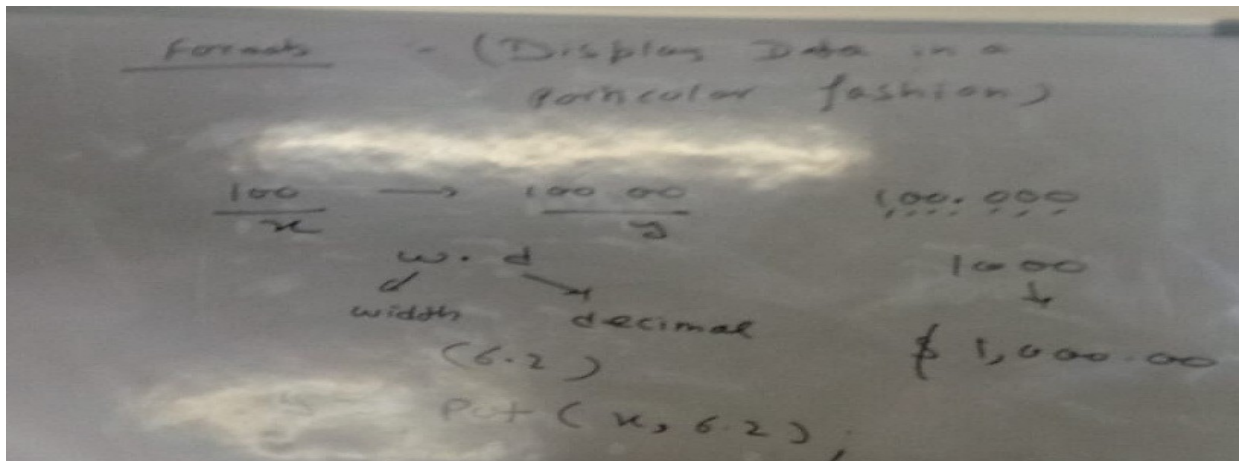 Formats - (Display Data in a
particular fashion)
100 → 100.00 100.000
x y
w.d 1000
width decimal
(6.2) $ 1,000.00
Put (x, 6.2);